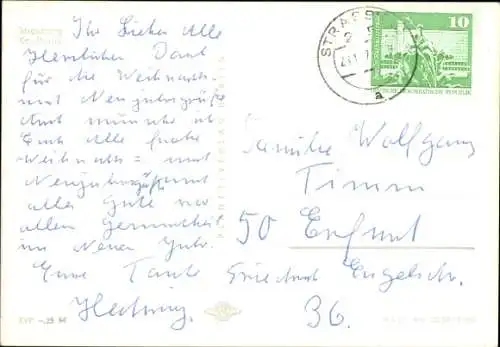 Strasburg
Ihr Lieben Alle
Herzlichen Dank
für die Weihnachts
und Neujahrsgrüße
Euch Alle frohe
Weihnachts- und
Neujahrsgrüße und
alles Gute vor
allen Gesundheit
im Neuen Jahr.
Eure Tante
Hedwig.
STRASB
a
10
DEUTSCHE DEMOKRATISCHE REPUBLIK
Familie Wolfgang
Timm
50 Erfurt
Friedrich Engelsstr.
36.
PLANET-VERLAG BERLIN